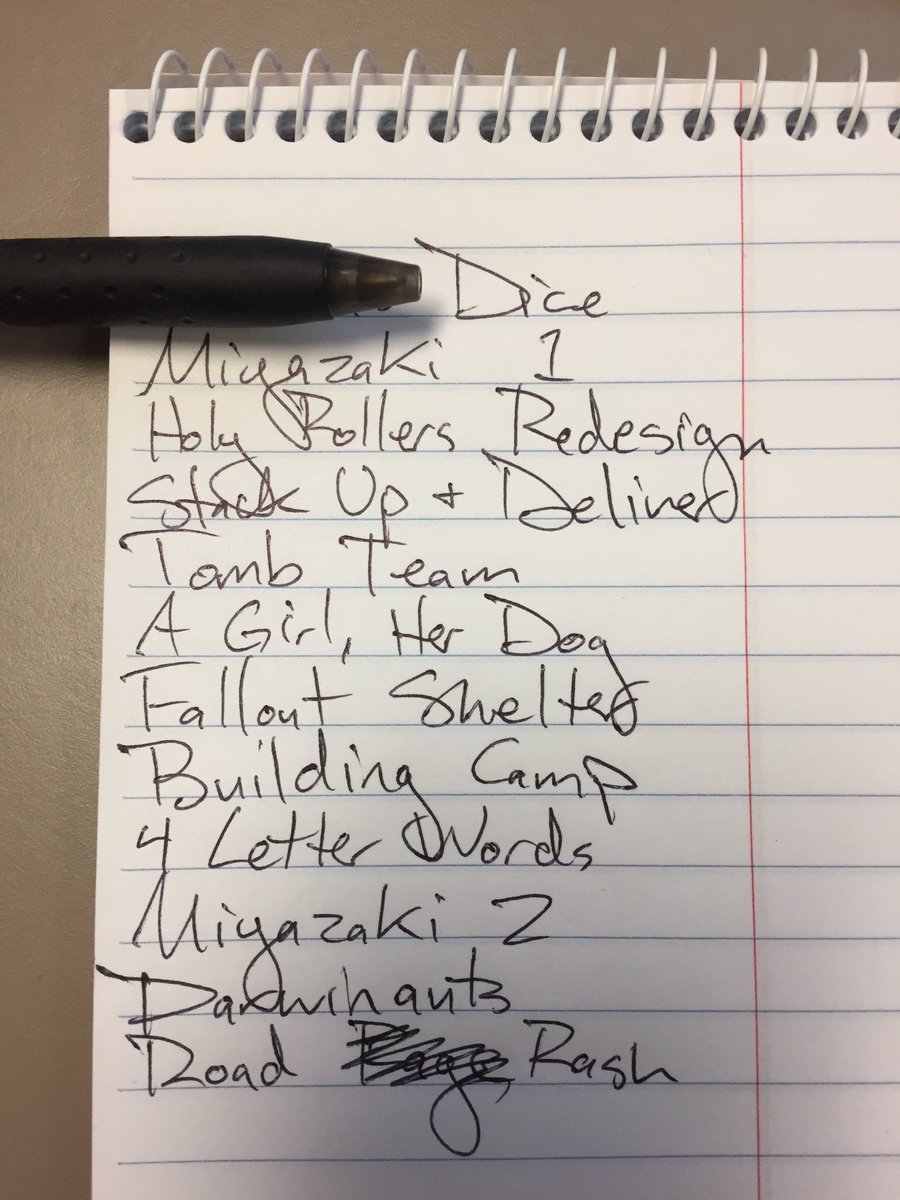 Dice
Miyazaki 1
Holy Rollers Redesign
Stack Up + Deliver
Tomb Team
A Girl, Her Dog
Fallout Shelter
Building Camp
4 Letter Words
Miyazaki 2
Darwinauts
Road Rash